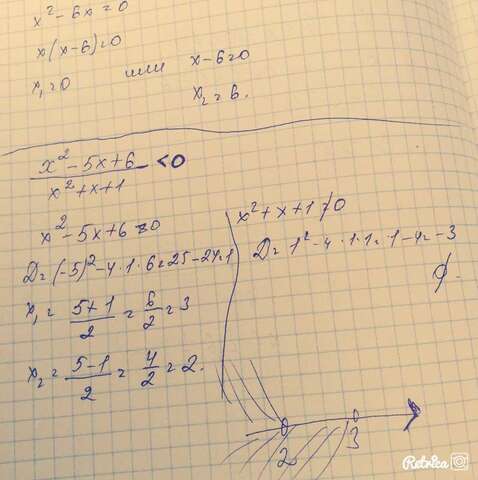 x² - 6x = 0
x(x-6) = 0
x₁ = 0 или x - 6 = 0
x₂ = 6.
x² - 5x + 6 / x² + x + 1 < 0
x² - 5x + 6 = 0
D = (-5)² - 4 · 1 · 6 = 25 - 24 = 1
x₁ = 5+1 / 2 = 6 / 2 = 3
x₂ = 5-1 / 2 = 4 / 2 = 2.
x² + x + 1 ≠ 0
D = 1² - 4 · 1 · 1 = 1 - 4 = -3
∅.
2 3
Retrica